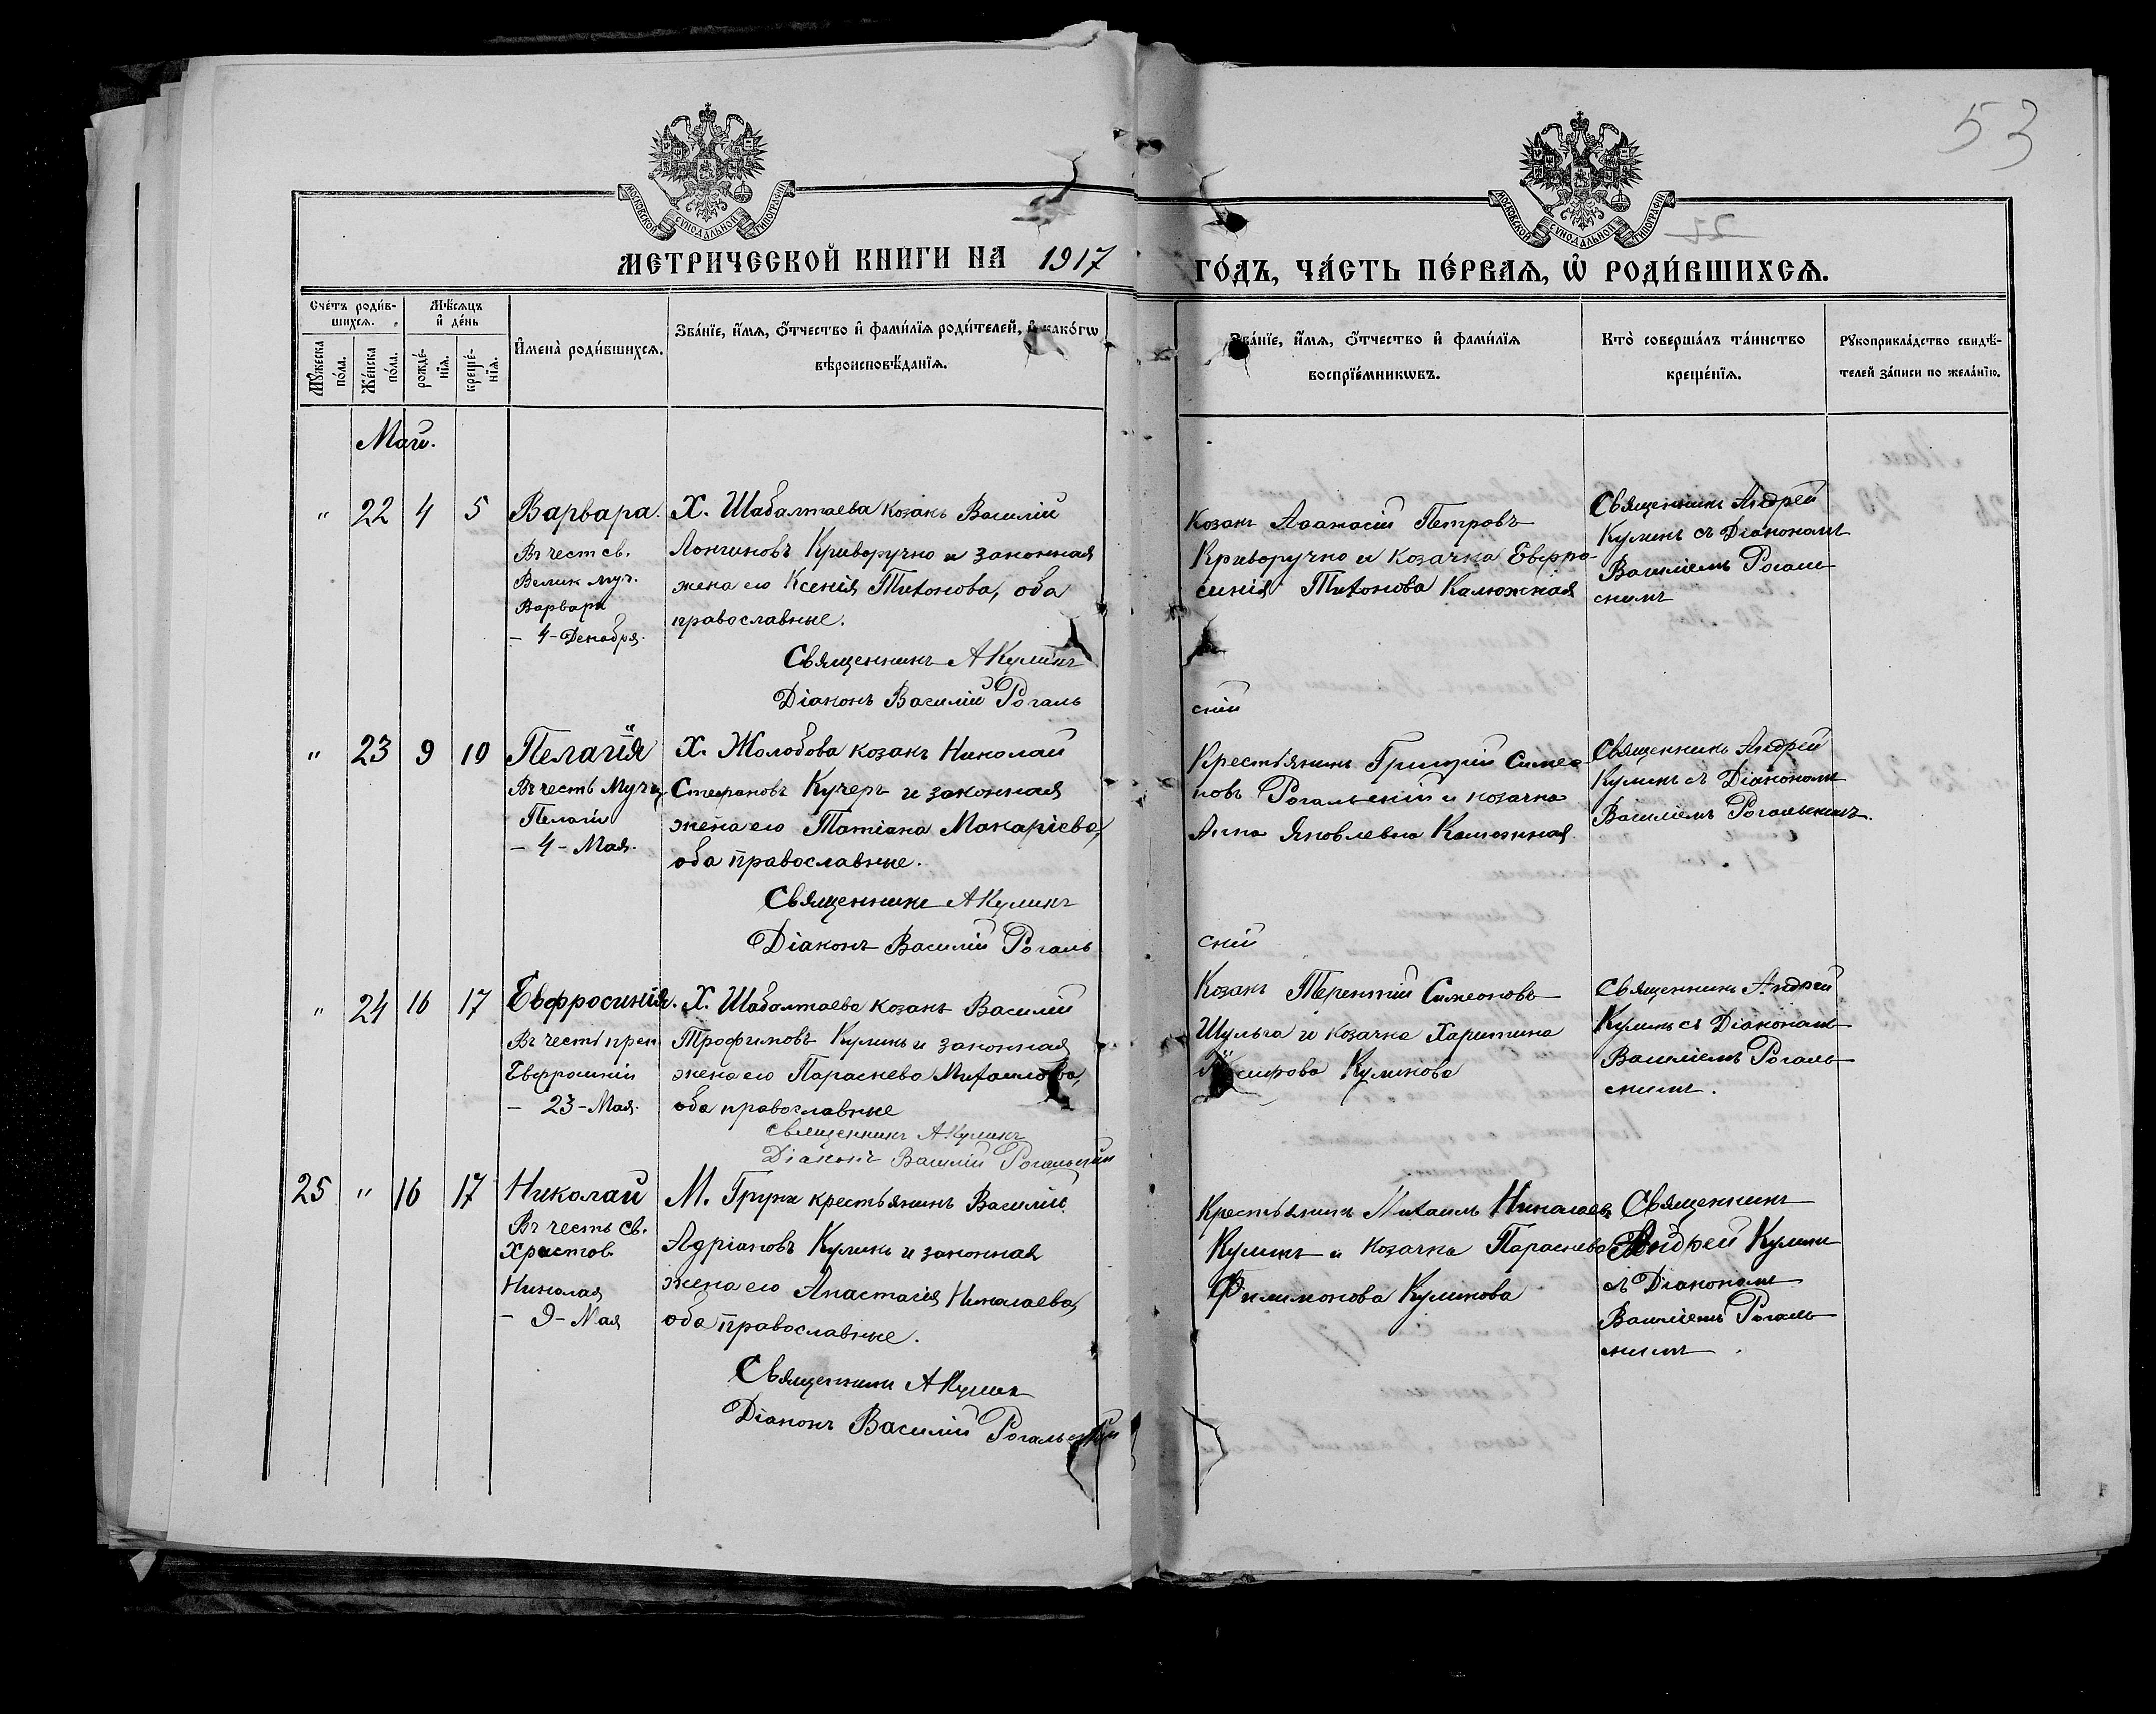 53
МОСКОВСКОЙ СѴНОДАЛЬНОЙ ТИПОГРАФІИ
МОСКОВСКОЙ СѴНОДАЛЬНОЙ ТИПОГРАФІИ
МЕТРИЧЕСКОЙ КНИГИ НА 1917
ГО́ДЪ, ЧА́СТЬ ПЕ́РВАѦ, Ѡ҆ РОДИ́ВШИХСѦ.
Сче́тъ роди́в-
шихсѧ.
Мѣ́сѧцъ
и҆ де́нь
Мꙋ́жеска
по́ла.
Же́нска
по́ла.
рожде́-
нїѧ.
креще́-
нїѧ.
И҆мена̀ роди́вшихсѧ.
Зва́нїе, и҆́мѧ, ѻ҆́тчество и҆ фами́лїѧ роди́телей, и҆ како́гѡ
вѣроисповѣ́данїѧ.
Зва́нїе, и҆́мѧ, ѻ҆́тчество и҆ фами́лїѧ
воспрїе́мникѡвъ.
Кто̀ соверша́лъ та́инство
креще́нїѧ.
Рꙋкоприкла́дство свидѣ́-
телей за́писи по жела́нїю.
Май.
" 22 4 5
Варвара.
Въ чест св.
Велик муч.
Варвары
- 4 - Декабря.
Х. Шабалтаева козакъ Василій
Лонгиновъ Криворучко и законная
жена его Ксенія Тихонова, оба
православные.
Священникъ А Куликъ
Діаконъ Василій Рогаль
Козакъ Аѳанасій Петровъ
Криворучко и козачка Евфро-
синія Тихонова Калюжная
скій
Священникъ Андрей
Куликъ съ Діакономъ
Василіемъ Рогаль
скимъ
" 23 9 10
Пелагія
Въ честь Муч
Пелагіи
- 4 - Мая.
Х. Жолобова козакъ Николай
Стефановъ Кучеръ и законная
жена его Татіана Макаріева,
оба православные.
Священникъ А Куликъ
Діаконъ Василій Рогаль
Крестьянинъ Григорій Симео-
новъ Рогальскій и козачка
Анна Яковлевна Калюжная
скій
Священникъ Андрей
Куликъ съ Діакономъ
Василіемъ Рогальскимъ.
" 24 16 17
Евфросинія.
Въ честь преп
Евфросиніи
- 23 - Мая.
Х. Шабалтаева козакъ Василій
Трофимовъ Куликъ и законная
жена его Параскева Михаилова,
оба православные
Священникъ А Куликъ
Діаконъ Василій Рогальскій
Козакъ Терентій Симеоновъ
Шульга и козачка Харитина
Куликова
Священникъ Андрей
Куликъ съ Діакономъ
Василіемъ Рогаль
скимъ.
25 " 16 17
Николай
Въ честь св.
Христов.
Николая
- 9 - Мая
М. Грунь крестьянинъ Василій
Адріановъ Куликъ и законная
жена его Анастасія Николаева,
оба православные.
Священникъ А Куликъ
Діаконъ Василій Рогальскій
Крестьянинъ Михаилъ Николаев
Куликъ и козачка Параскева
Филимонова Куликова
Священникъ
Андрей Куликъ
съ Діакономъ
Василіемъ Рогаль
скимъ.